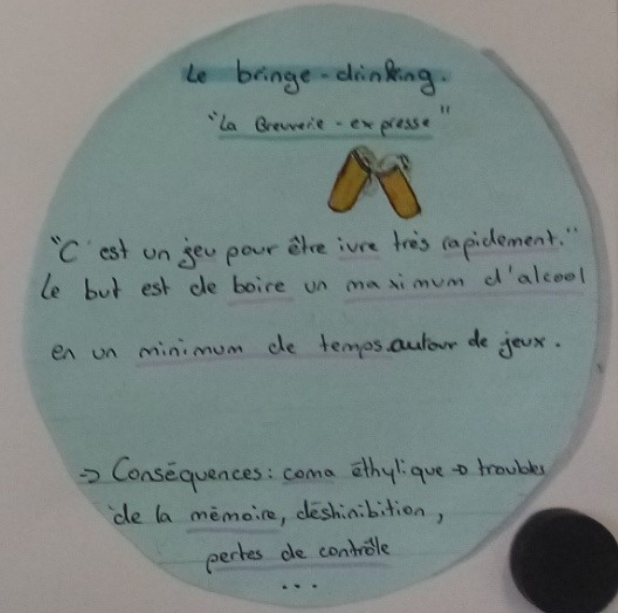 Le bringe-drinking.
"La Breuverie-expresse"
"C'est un jeu pour être ivre très rapidement."
Le but est de boire un maximum d'alcool
en un minimum de temps autour de jeux.
=> Conséquences: coma éthylique → troubles
de la mémoire, déshinibition,
pertes de contrôle
...